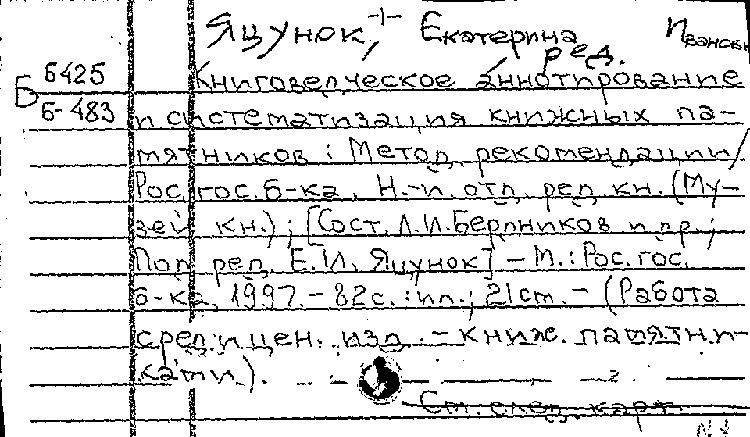 Яцунок, Екатерина Ивановн
ред.
Б425
Б Б-483
Книговедческое аннотирование
и систематизация книжных па-
мятников : Метод. рекомендации /
Рос. гос. б-ка, Н.-и. отд. ред. кн. (Му-
зей кн.) ; [Сост. А.И. Берników и др.;
Под ред. Е.И. Яцунок] – М. : Рос. гос.
б-ка, 1997. – 82 с. : ил. ; 21 см. – (Работа
с ред. и цен. изд. – книж. памятни-
ками).
См. след. карт.